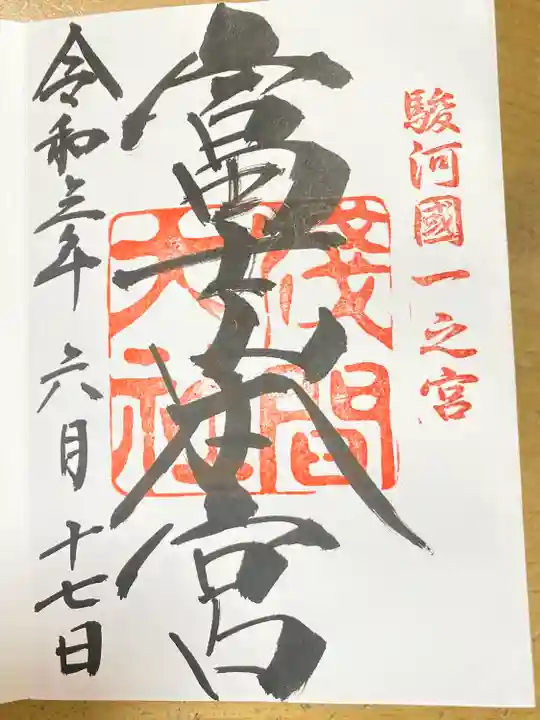 駿河國一之宮
富士本宮
淺間大社
令和三年六月十七日